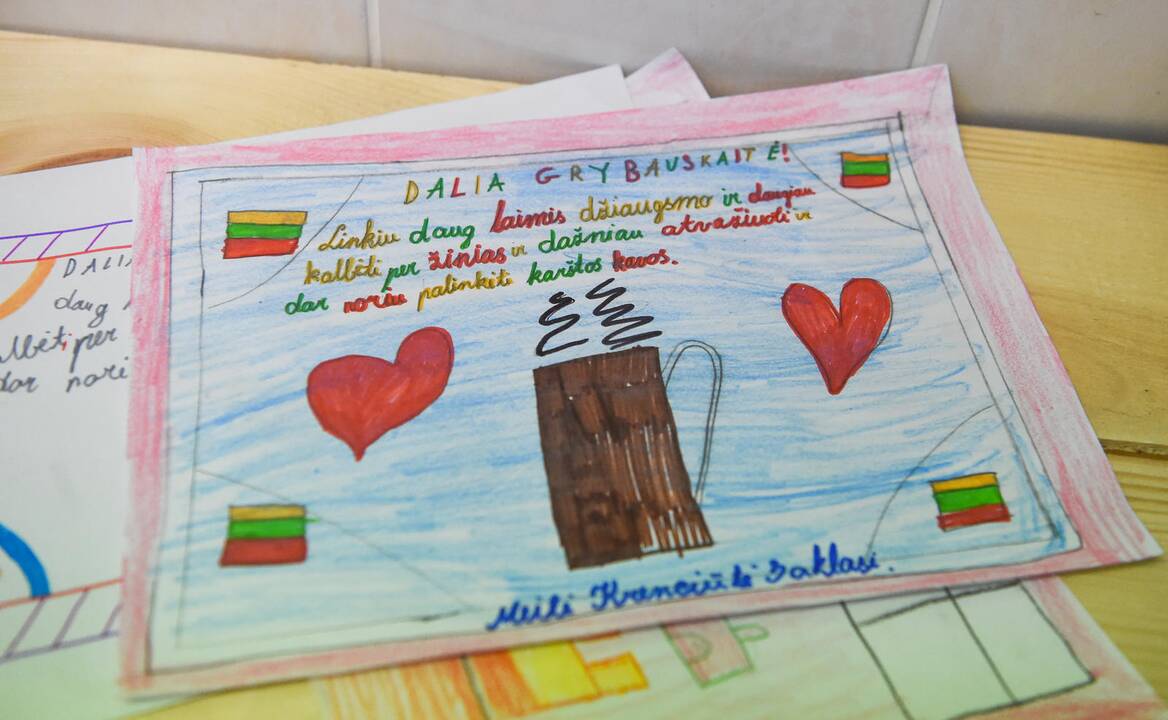 DALIA GRYBAUSKAITĖ!
Linkiu daug laimis džiaugsmo ir daugiau
kalbėti per žinias ir dažniau atvažiuoti ir
dar noriu palinkėti karštos kavos.
Meilė 3 aklasi.
DALI
daug
lbėti per
dar nori